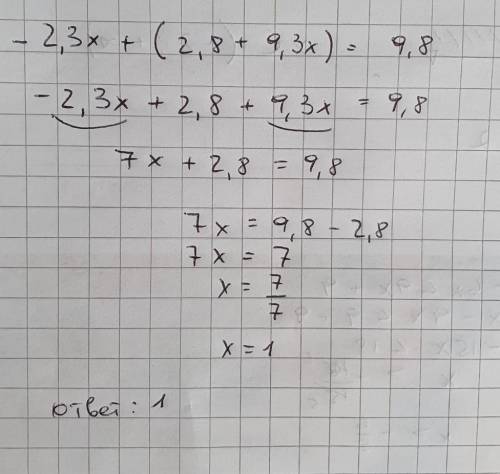 - 2,3x + (2,8 + 9,3x) = 9,8
- 2,3x + 2,8 + 9,3x = 9,8
7x + 2,8 = 9,8
7x = 9,8 - 2,8
7x = 7
x = 7/7
x = 1
ответ: 1